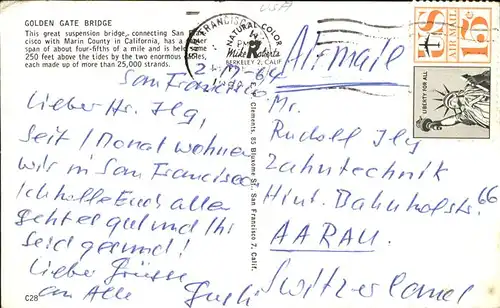 GOLDEN GATE BRIDGE
This great suspension bridge, connecting San
cisco with Marin County in California, has a
span of about four-fifths of a mile and is held
250 feet above the tides by the two enormous
each made up of more than 25,000 strands.
USA
FRANCISCO
NATURAL COLOR
Mike Roberts
BERKELEY 2, CALIF.
Airmail
US
15c
AIR MAIL
LIBERTY FOR ALL
San Francisco
Lieber Hr. Ilg,
seit 1 Monat wohnen
wir in San Francisco
Ich hoffe Euch allen
geht es gut und Ihr
seid gesund!
Liebe Grüsse
an Alle
Clements, 85 Bluxome St., San Francisco 7, Calif.
Mr.
Rudolf Ilg
Zahntechnik
Hint. Bahnhofstr. 66
AARAU
Switzerland
C28